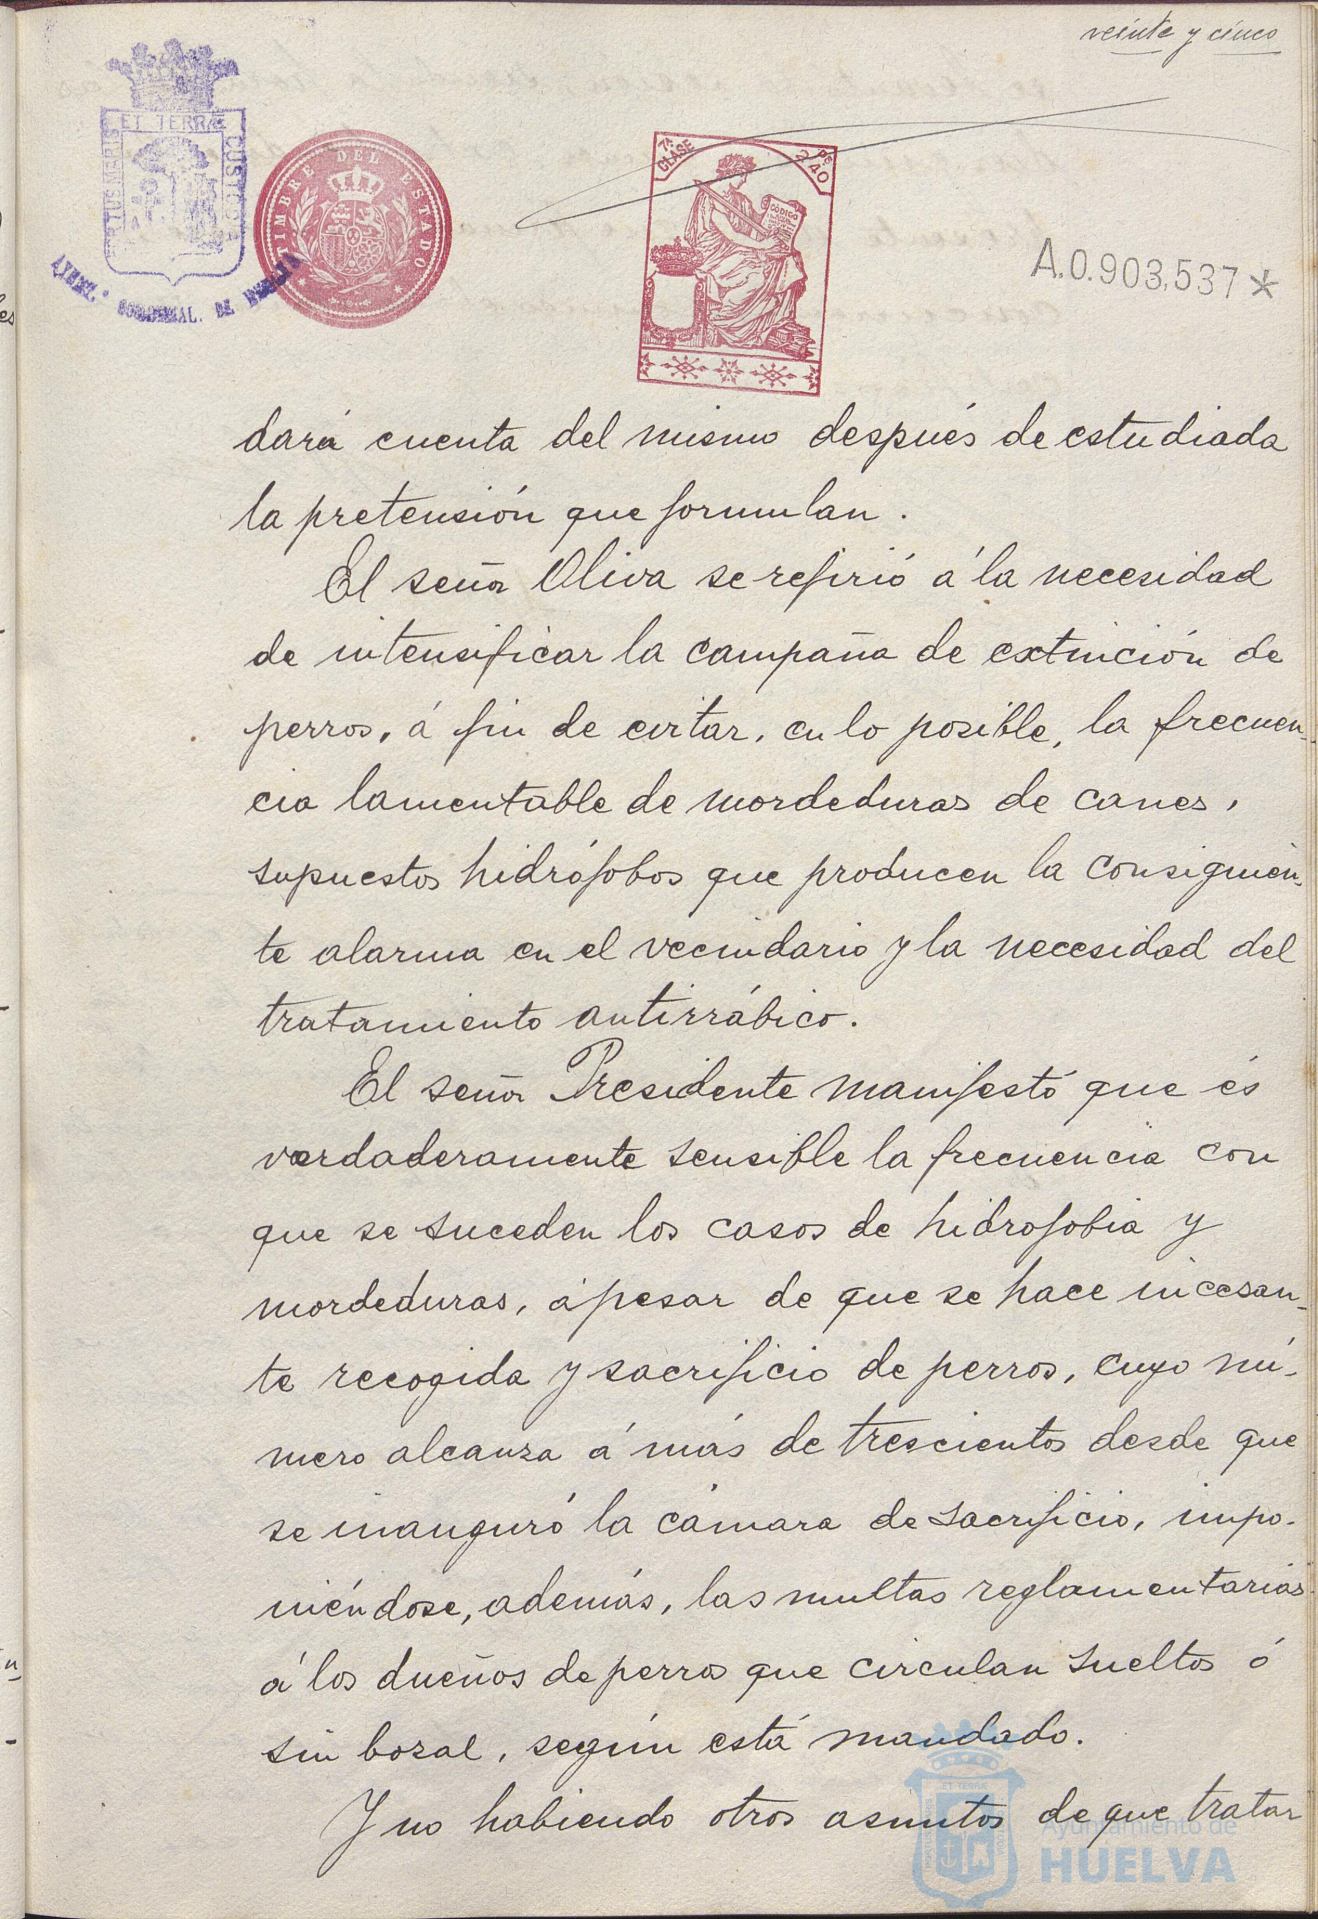 veinte y cinco
ET TERRÆ
CUSTODIA
PORTUS MARIS
TIMBRE DEL ESTADO
7ª CLASE
PS 2'40
CÓDIGO
A.0.903,537*
dará cuenta del mismo después de estudiada
la pretensión que formulan.
El señor Oliva se refirió á la necesidad
de intensificar la campaña de extinción de
perros, á fin de evitar, en lo posible, la frecuen-
cia lamentable de mordeduras de canes,
supuestos hidrófobos que producen la consiguien-
te alarma en el vecindario y la necesidad del
tratamiento antirrábico.
El señor Presidente manifestó que és
verdaderamente sensible la frecuencia con
que se suceden los casos de hidrofobia y
mordeduras, ápesar de que se hace incesan-
te recogida y sacrificio de perros, cuyo nú-
mero alcanza á más de trescientos desde que
se inauguró la cámara de sacrificio, impo-
niéndose, además, las multas reglamentarias
á los dueños de perros que circulan sueltos ó
sin bozal, según está mandado.
Y no habiendo otros asuntos de que tratar
Ayuntamiento de
HUELVA